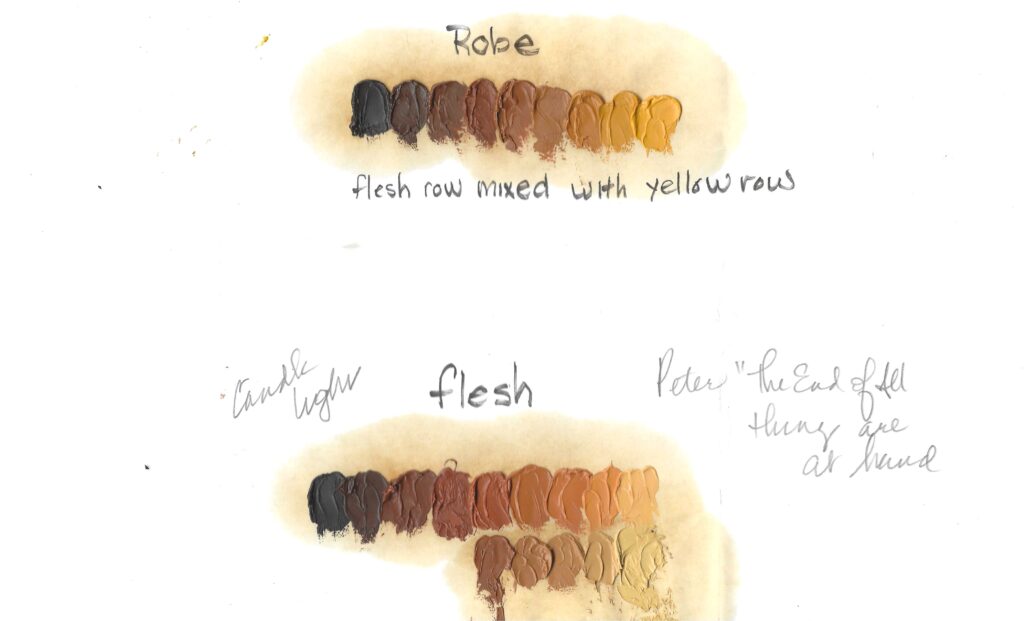 Robe
flesh row mixed with yellow row
Candle
light
flesh
Peter "The End of All
things are
at hand